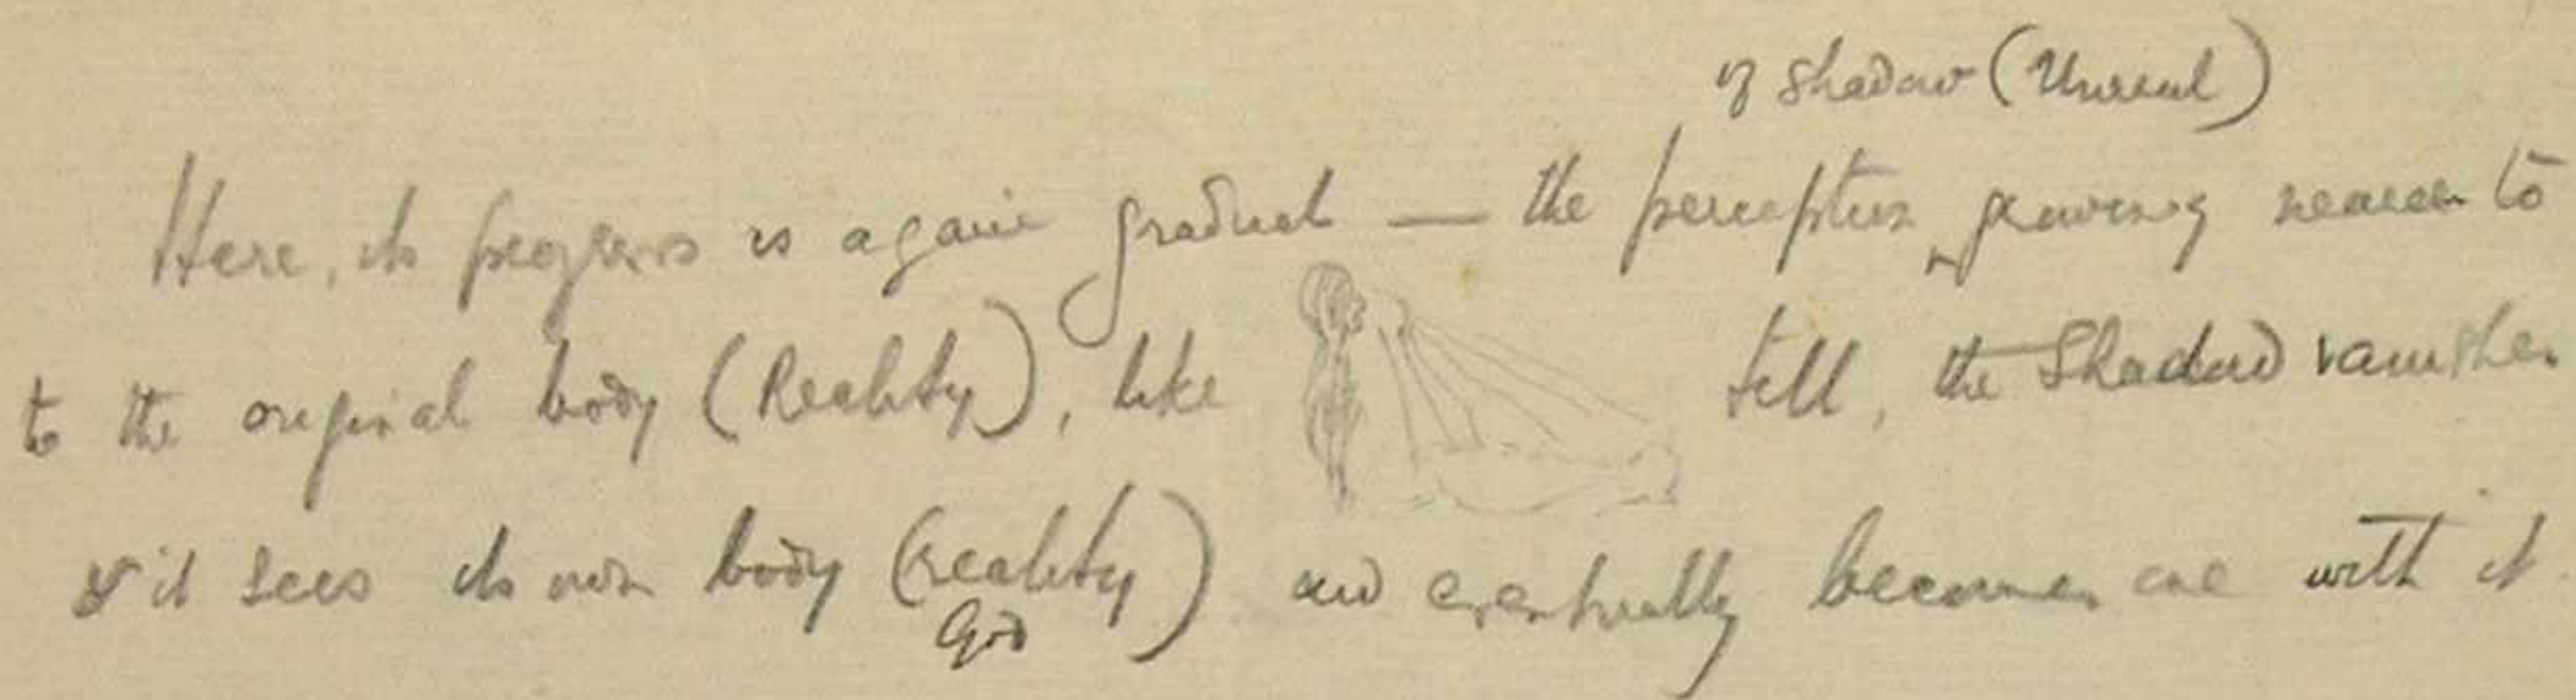 of Shadow (Unreal)
Here, its progress is again gradual — the perception growing nearer to
to the original body (Reality), like till, the Shadow vanishes
& it sees its own body (reality)
God
and eventually becomes one with it